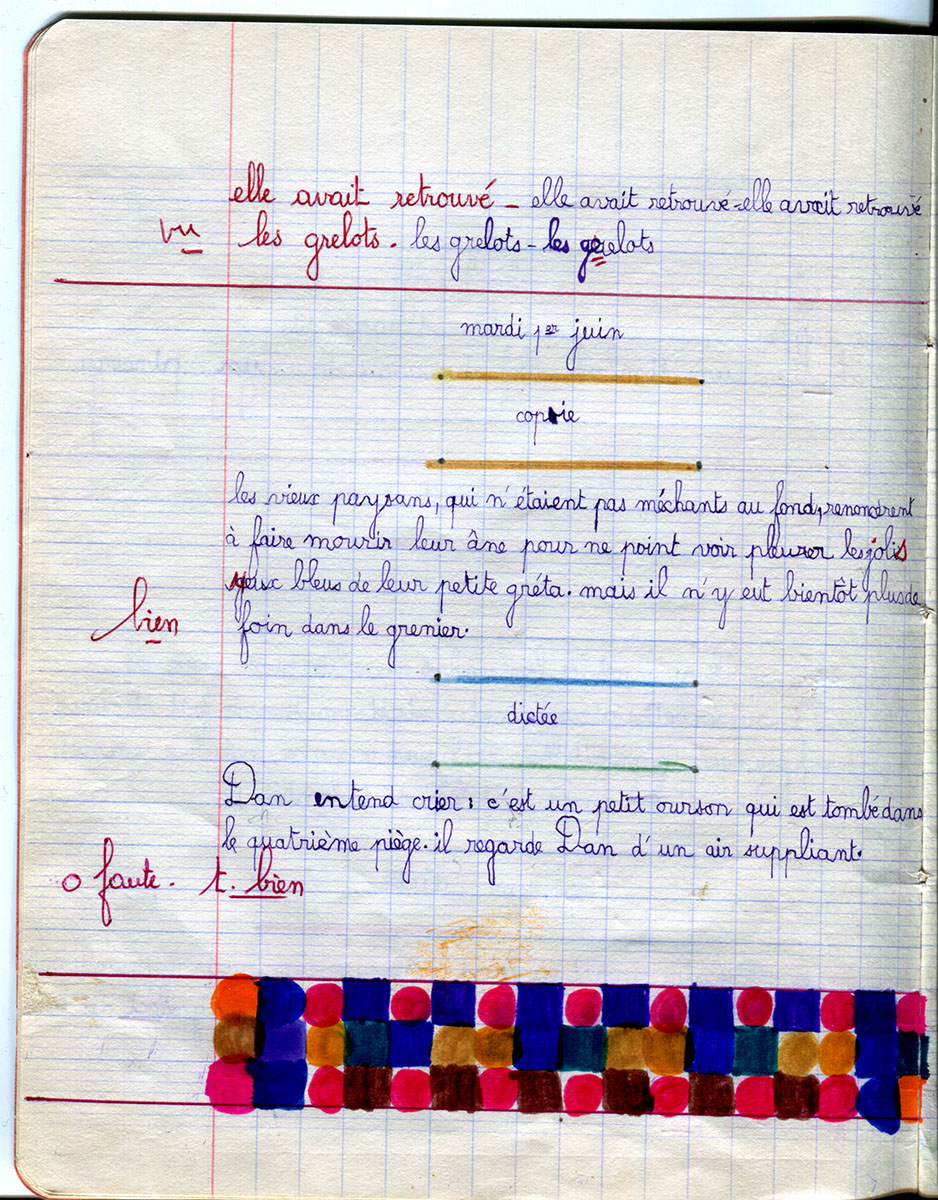 elle avait retrouvé - elle avait retrouvé - elle avait retrouvé
vu les grelots. les grelots - les grelots
mardi 1er juin
copie
les vieux paysans, qui n'étaient pas méchants au fond, renoncèrent
à faire mourir leur âne pour ne point voir pleurer les jolis
yeux bleus de leur petite gréta. mais il n'y eut bientôt plus de
bien foin dans le grenier.
dictée
Dan entend crier : c'est un petit ourson qui est tombé dans
le quatrième piège. il regarde Dan d'un air suppliant.
0 faute. t. bien